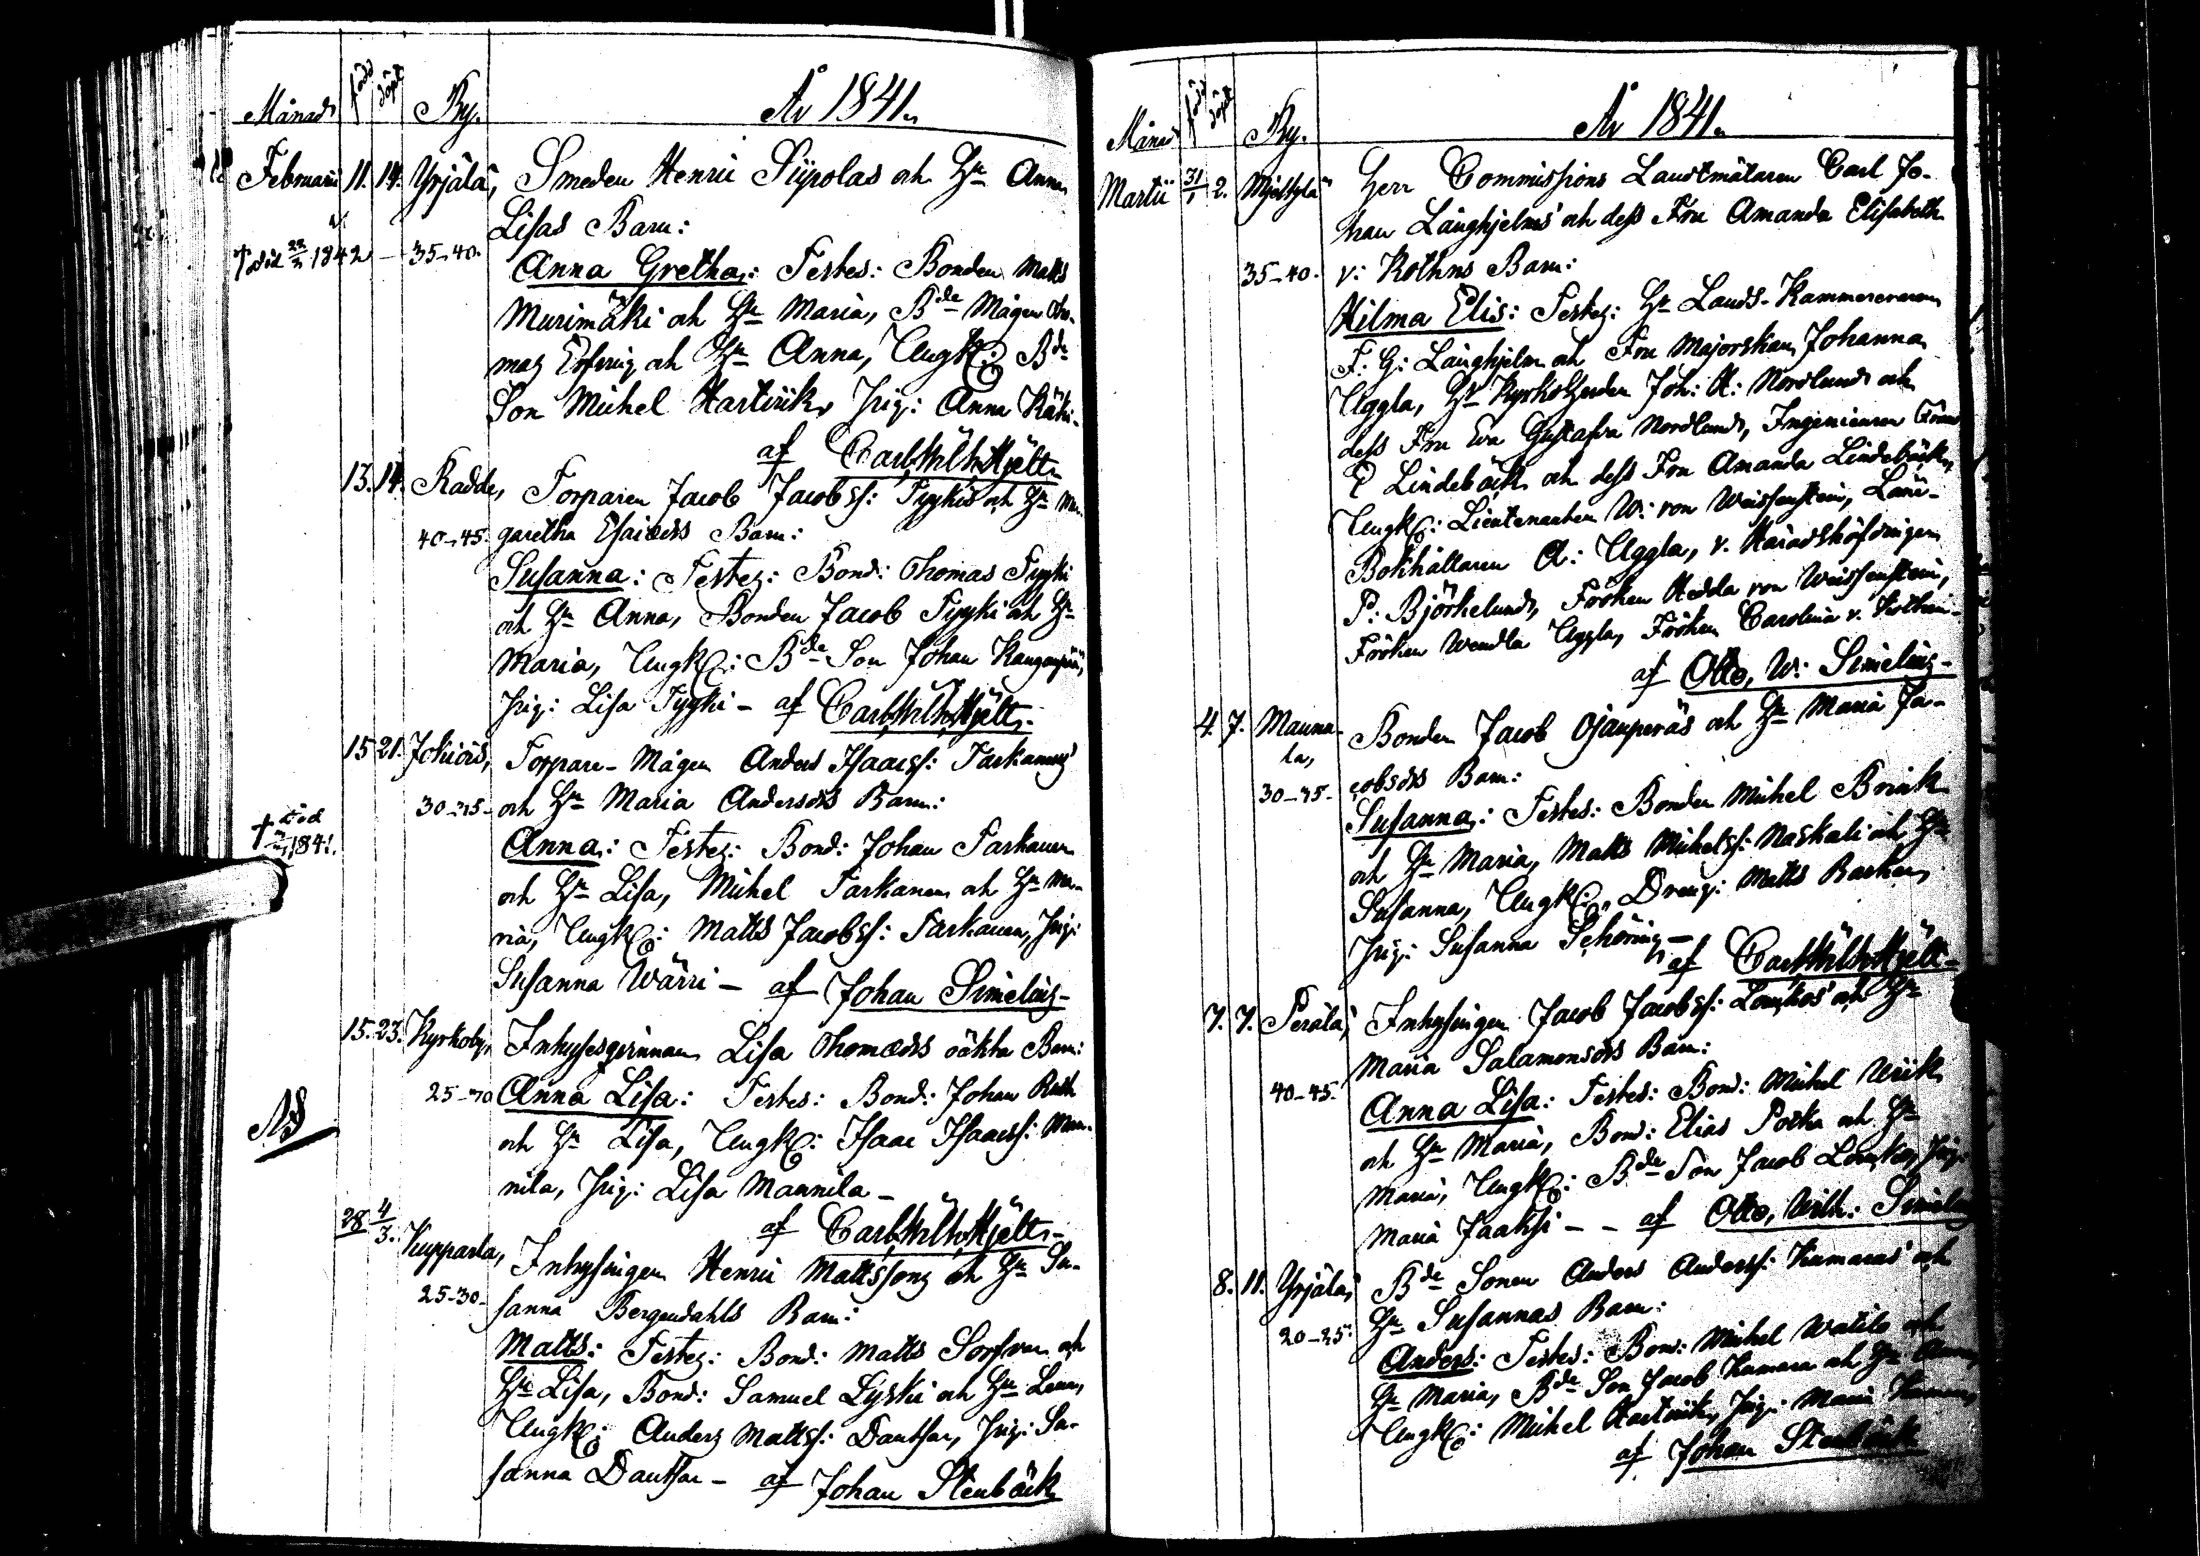 Månad född döpt By. År 1841.
Februarii 11. 14. Yrjälä, Smeden Henric Siipolas och Hu Anna
Lisas Barn:
† död 22/2 1842 35-40. Anna Gretha: Testes: Bonden Matts
Murimäki och Hu Maria, Bde Mågen Tho-
mas och Hu Anna, Ungk: Bde
Son Michel Hartvik, Pig: Anna Räihi-
af Carl Wilh Hjelt
13. 14. Radde, Torparen Jacob Jacobss: Tyykis och Hu Mar-
40-45. garetha Esaiædrs Barn:
Susanna: Testes: Bond: Thomas Tyyki
och Hu Anna, Bonden Jacob Tyyki och Hu
Maria, Ungk: Bde Son Johan
Pig: Lisa Tyyki - af Carl Wilh Hjelt
15 21. Jokiois, Torpare-Mågen Anders Isaacss: Tarkanens
30-35- och Hu Maria Andersdrs Barn:
† död 1841. Anna: Testes: Bond: Johan Tarkanen
och Hu Lisa, Michel Tarkanen och Hu Ma-
ria, Ungk: Matts Jacobss: Tarkanen, Pig:
Susanna Wärri - af Johan Simelius
15. 23. Kyrkoby, Inhysesqvinnan Lisa Thomædrs oäkta Barn:
25-30 Anna Lisa: Testes: Bond: Johan Rath
NB och Hu Lisa, Ungk: Isaac Isaacss: Man-
nila, Pig: Lisa Mannila -
af Carl Wilh Hjelt
28 4/3. Kupparla, Inhysingen Henric Mattssons och Hu Su-
25-30- sanna Bergendahls Barn:
Matts: Testes: Bond: Matts Sorfvar och
Hu Lisa, Bond: Samuel Lyski och Hu Lena,
Ungk: Anders Mattss: Dantsar, Pig: Su-
sanna Dantsar - af Johan Stenbäck
Månad född döpt By. År 1841.
Martii 31/1 2. Mjölkylä Herr Commissions Landtmätaren Carl Jo-
han Langhjelms och dess Fru Amanda Elisabeth
35-40. v: Kothens Barn:
Hilma Elis: Testes: Hr Lands-Kammereraren
F: G: Langhjelm och Fru Majorskan Johanna
Uggla, Hr Kyrkoherden Joh: H: Nordlund och
dess Fru Eva Gustafva Nordlund, Ingenieuren
Lindebäck och dess Fru Amanda Lindebäck,
Ungk: Lieutenanten W: von Weissenstein, Läns-
Bokhållaren A: Uggla, v. Häradshöfdingen
P: Björkelund, Fröken Hedda von Weissenstein,
Fröken Wendla Uggla, Fröken Carolina v. Kothen -
af Otto, W: Simelius -
4. 7. Manna- Bonden Jacob Ojanperäs och Hu Maria Ja-
la,
30-35- cobsdrs Barn:
Susanna: Testes: Bonden Michel Brink
och Hu Maria, Matts Michelss: Naskali och Hu
Susanna, Ungk: Dreng: Matts Rasken,
Pig: Susanna -
af Carl Wilh Hjelt -
7. 7. Perälä, Inhysingen Jacob Jacobss: Louskos och Hu
Maria Salamonsdrs Barn:
40-45. Anna Lisa: Testes: Bond: Michel Wiik
och Hu Maria, Bond: Elias Poska och Hu
Maria, Ungk: Bde Son Jacob Lousko, Pig:
Maria Jaaksi - - af Otto, Wilh: Simelius
8. 11. Yrjälä, Bde Sonen Anders Anderss: Kamaras och
Hu Susannas Barn:
20-25. Anders: Testes: Bond: Michel Watilo och
Hu Maria, Bde Son Jacob Kamara och Hu Anna,
Ungk: Michel Hartvik, Pig: Maria Kamara,
af Johan Stenbäck